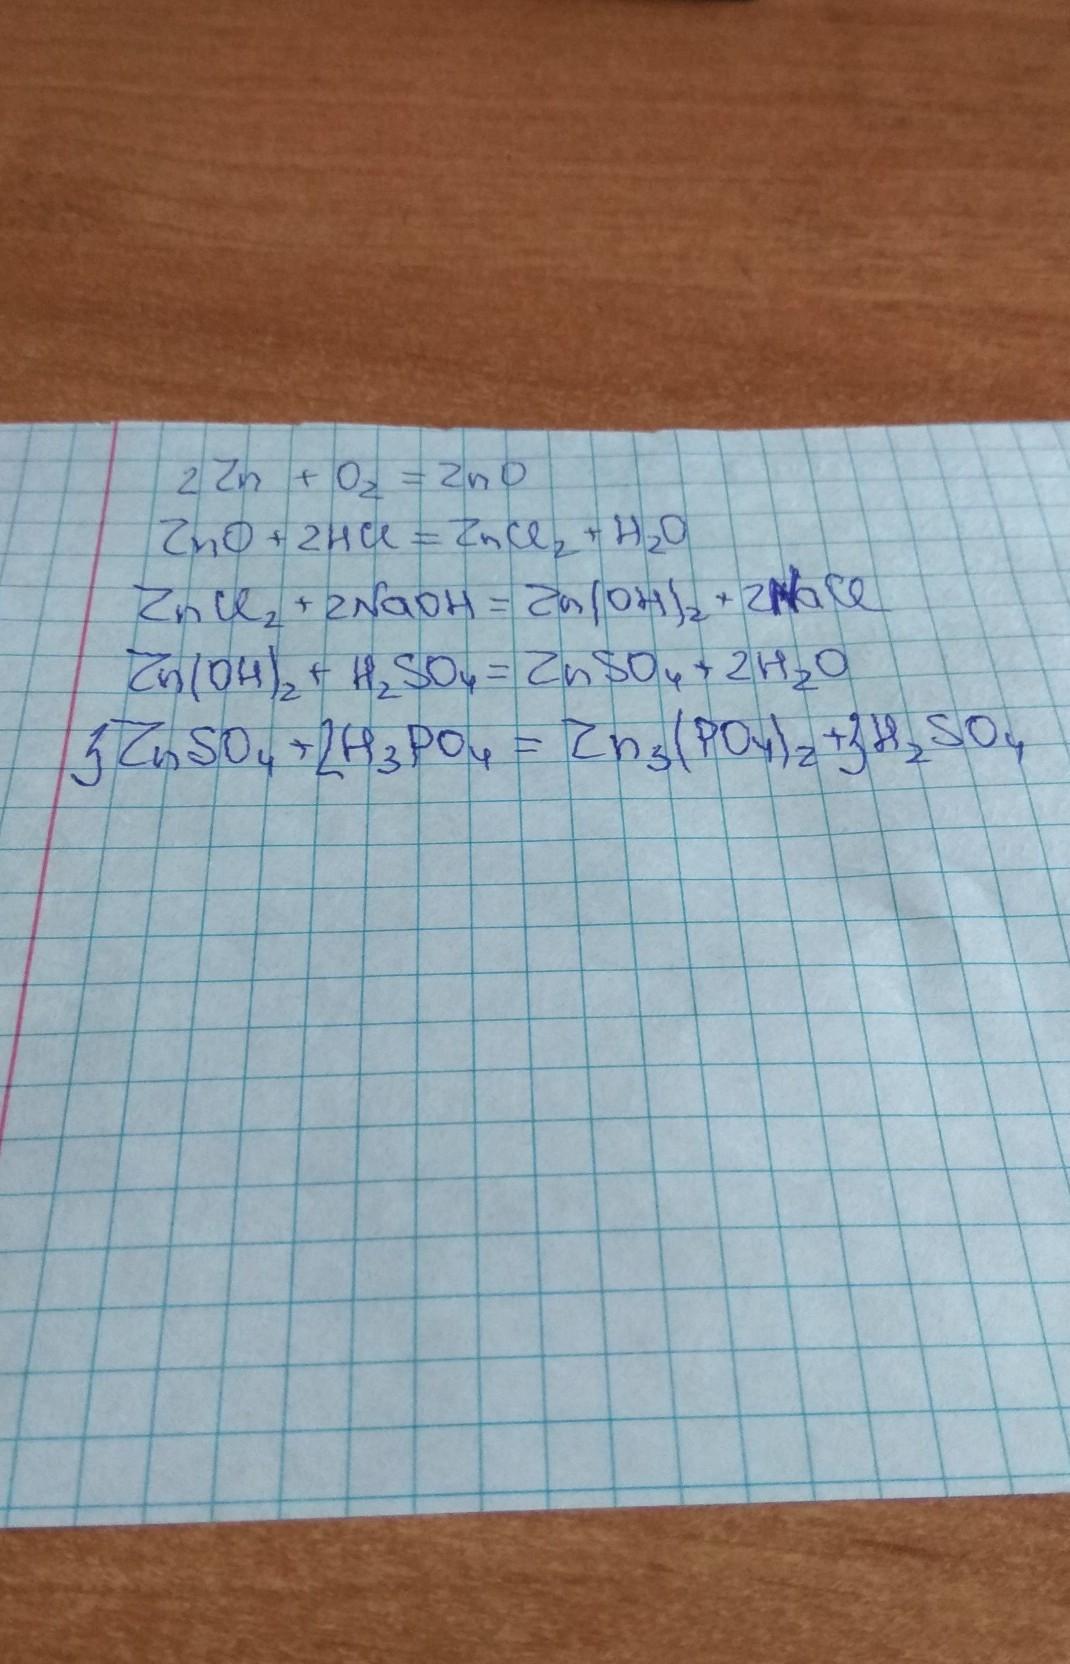 2Zn + O₂ = ZnO
ZnO + 2HCl = ZnCl₂ + H₂O
ZnCl₂ + 2NaOH = Zn(OH)₂ + 2NaCl
Zn(OH)₂ + H₂SO₄ = ZnSO₄ + 2H₂O
3ZnSO₄ + 2H₃PO₄ = Zn₃(PO₄)₂ + 3H₂SO₄